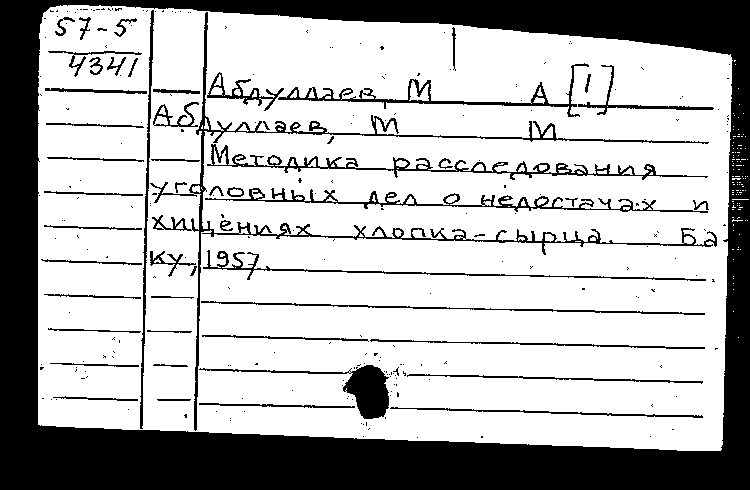 57-5
4341
Абдуллаев, М А [!]
Абдуллаев, М М
Методика расследования
уголовных дел о недостачах и
хищениях хлопка-сырца. Ба-
ку, 1957.